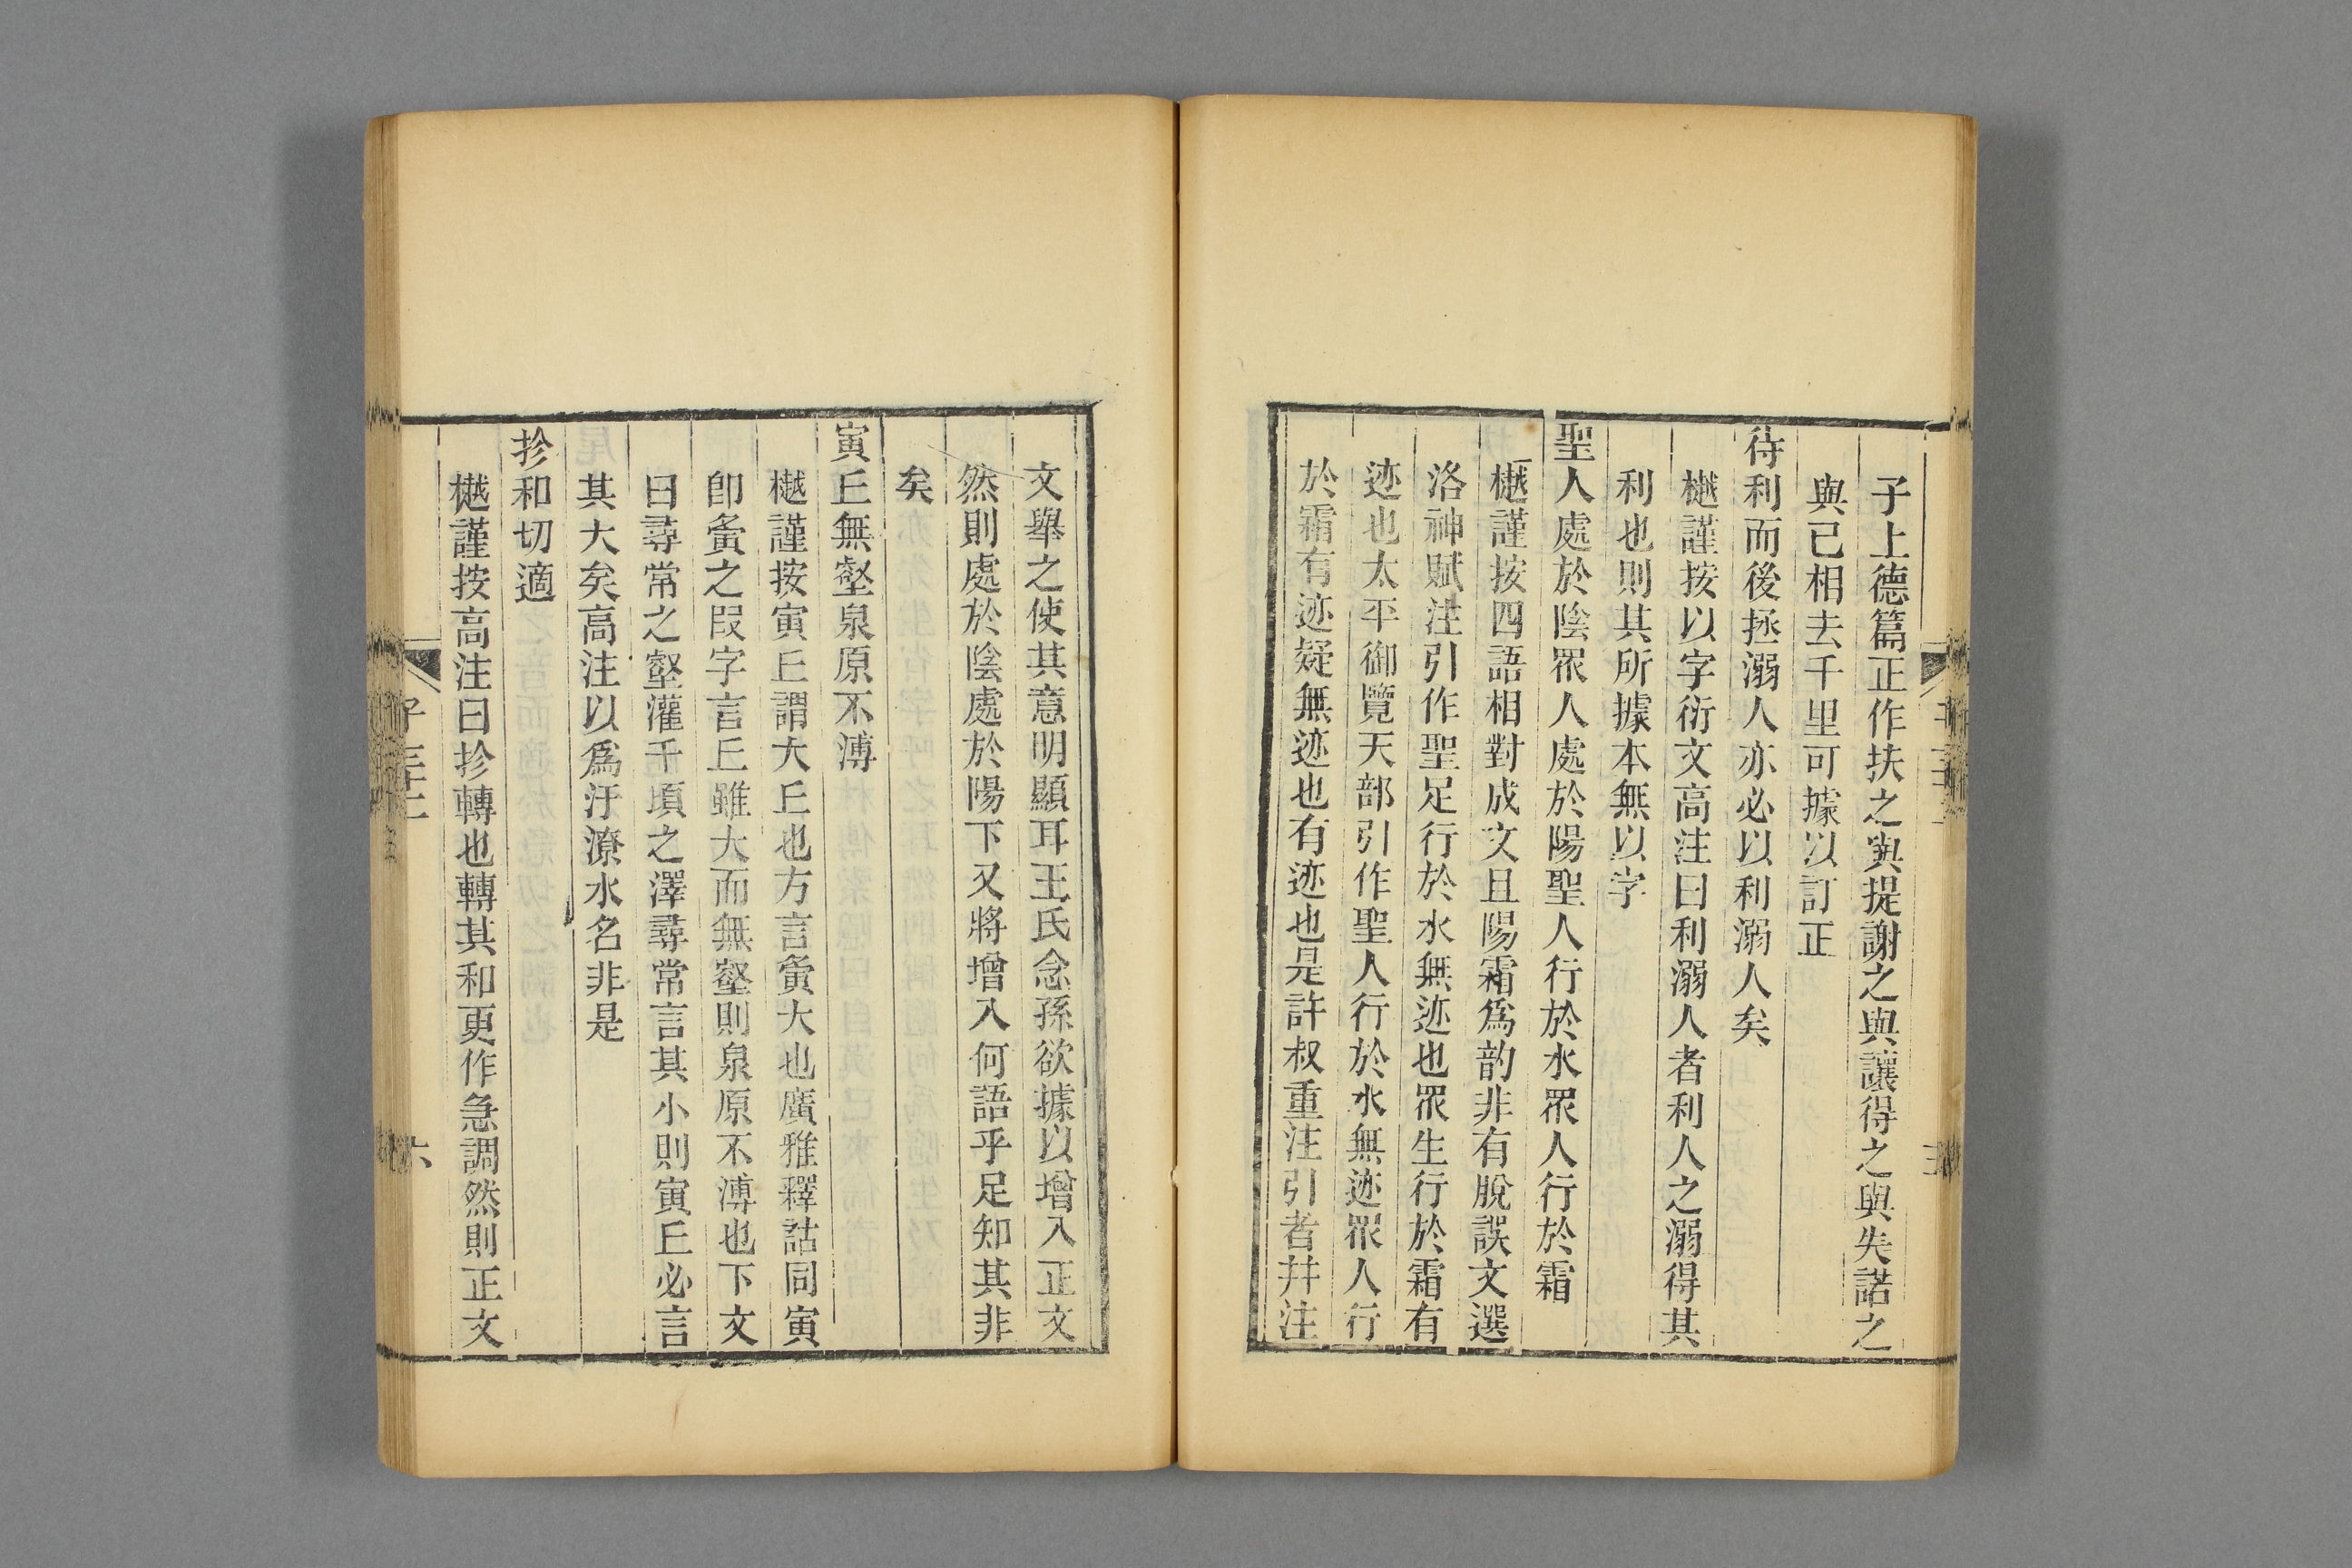 子上德篇正作扶之與提謝之與讓得之與失諾之
與已相去千里可據以訂正
待利而後拯溺人亦必以利溺人矣
樾謹按以字衍文高注曰利溺人者利人之溺得其
利也則其所據本無以字
聖人處於陰眾人處於陽聖人行於水眾人行於霜
樾謹按四語相對成文且陽霜爲韵非有脫誤文選
洛神賦注引作聖足行於水無迹也眾生行於霜有
迹也太平御覽天部引作聖人行於水無迹眾人行
於霜有迹疑無迹也有迹也是許叔重注引者并注
文舉之使其意明顯耳王氏念孫欲據以增入正文
然則處於陰處於陽下又將增入何語乎足知其非
矣
寅𠀉無壑泉原不溥
樾謹按寅𠀉謂大𠀉也方言夤大也廣雅釋詁同寅
卽夤之叚字言𠀉雖大而無壑則泉原不溥也下文
曰尋常之壑灌千頃之澤尋常言其小則寅𠀉必言
其大矣高注以爲汙潦水名非是
抮和切適
樾謹按高注曰抮轉也轉其和更作急調然則正文
子三十
六